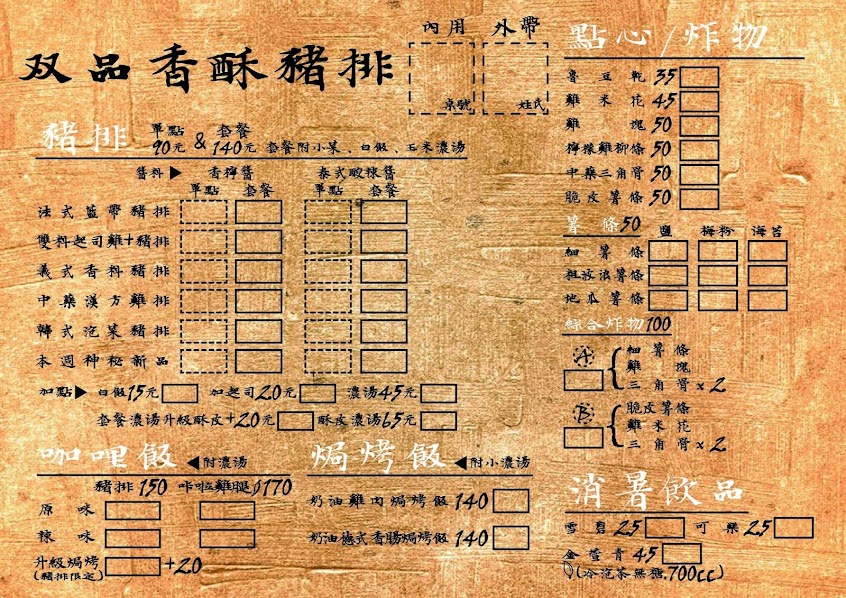 双品香酥豬排
內用 外帶
桌號 姓氏
豬排 單點90元 & 套餐140元 套餐附小菜、白飯、玉米濃湯
醬料▶ 香檸醬 泰式酸辣醬
單點 套餐 單點 套餐
法式藍帶豬排
雙料起司雞+豬排
義式香料豬排
中藥漢方雞排
韓式泡菜豬排
本週神秘新品
加點▶ 白飯15元 加起司20元 濃湯45元
套餐濃湯升級酥皮+20元 酥皮濃湯65元
咖哩飯 ◀附濃湯
豬排150 咔啦雞腿170
原味
辣味
升級焗烤 +20
(豬排限定)
焗烤飯 ◀附小濃湯
奶油雞肉焗烤飯140
奶油德式香腸焗烤飯140
點心/炸物
魯豆乾35
雞米花45
雞塊50
檸檬雞柳條50
中藥三角骨50
脆皮薯條50
薯條50 鹽 梅粉 海苔
細薯條
粗波浪薯條
地瓜薯條
綜合炸物100
A 細薯條
雞塊
三角骨x2
B 脆皮薯條
雞米花
三角骨x2
消暑飲品
雪碧25 可樂25
金萱青45
(冷泡茶無糖.700cc)